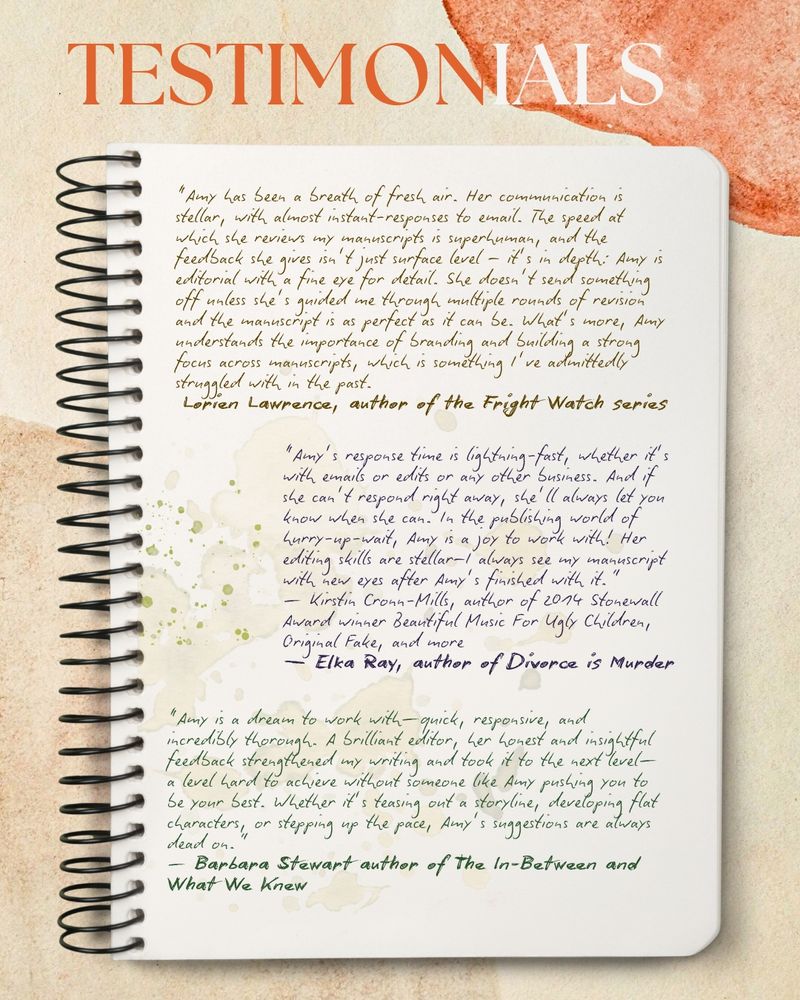 TESTIMONIALS
"Amy has been a breath of fresh air. Her communication is
stellar, with almost instant-responses to email. The speed at
which she reviews my manuscripts is superhuman, and the
feedback she gives isn't just surface level – it's in depth: Amy is
editorial with a fine eye for detail. She doesn't send something
off unless she's guided me through multiple rounds of revision
and the manuscript is as perfect as it can be. What's more, Amy
understands the importance of branding and building a strong
focus across manuscripts, which is something I've admittedly
struggled with in the past.
Lorien Lawrence, author of the Fright Watch series
"Amy's response time is lightning-fast, whether it's
with emails or edits or any other business. And if
she can't respond right away, she'll always let you
know when she can. In the publishing world of
hurry-up-wait, Amy is a joy to work with! Her
editing skills are stellar—I always see my manuscript
with new eyes after Amy's finished with it."
— Kirstin Cronn-Mills, author of 2014 Stonewall
Award winner Beautiful Music For Ugly Children,
Original Fake, and more
— Elka Ray, author of Divorce is Murder
"Amy is a dream to work with—quick, responsive, and
incredibly thorough. A brilliant editor, her honest and insightful
feedback strengthened my writing and took it to the next level—
a level hard to achieve without someone like Amy pushing you to
be your best. Whether it's teasing out a storyline, developing flat
characters, or stepping up the pace, Amy's suggestions are always
dead on."
— Barbara Stewart author of The In-Between and
What We Knew